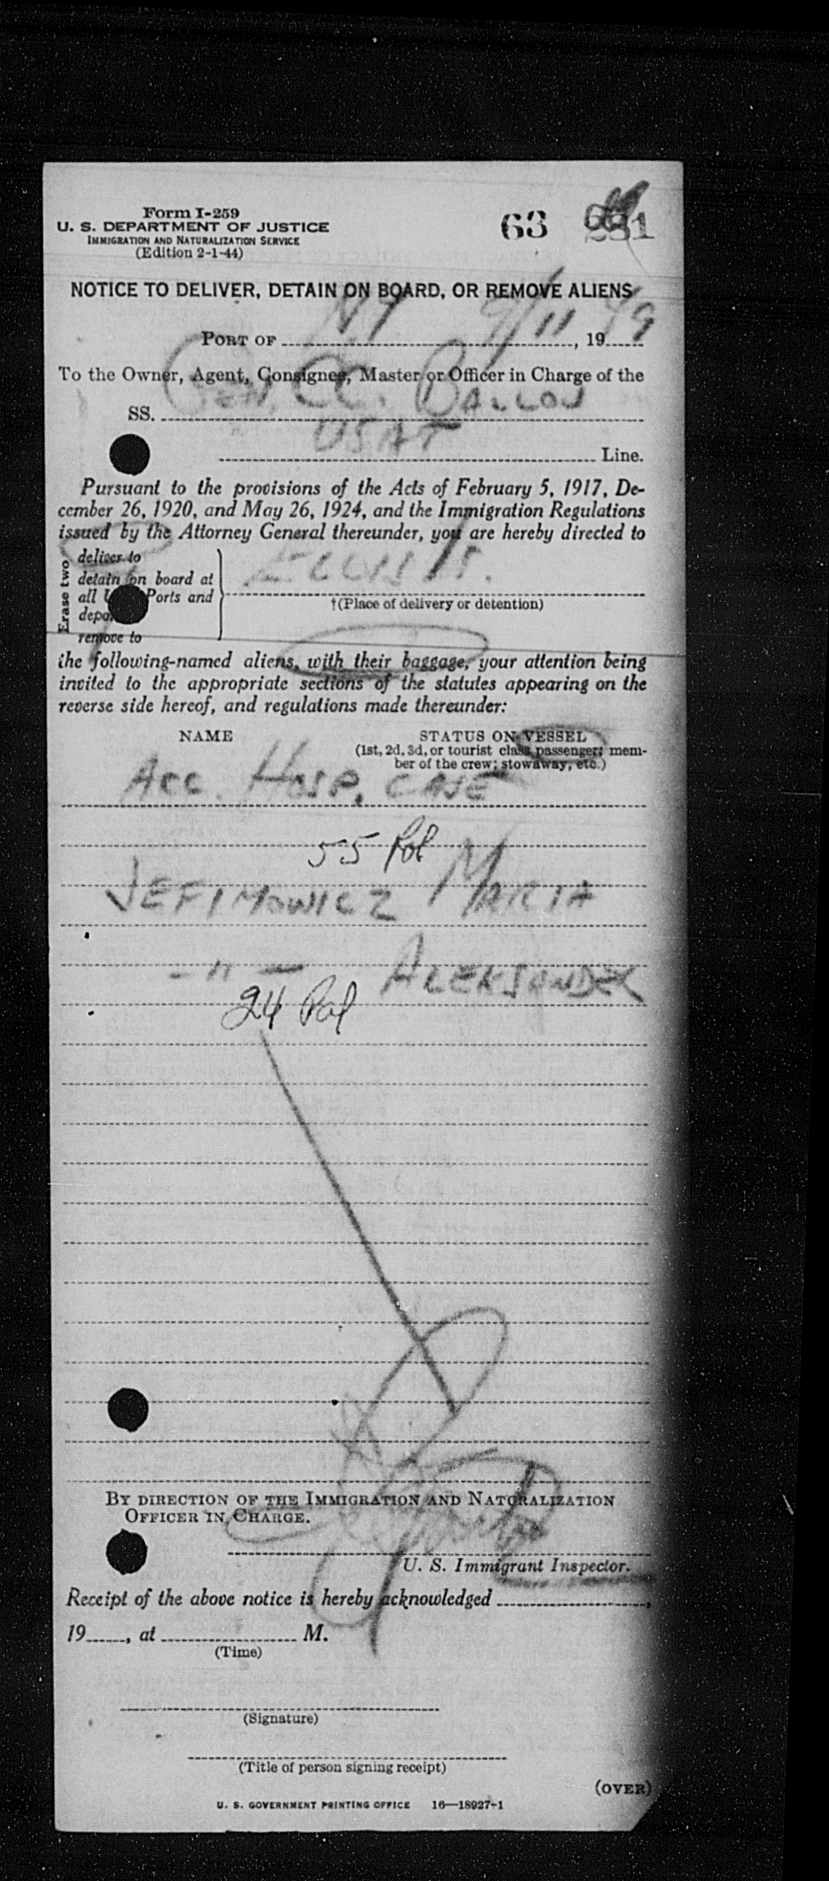 Form I-259
U. S. DEPARTMENT OF JUSTICE
IMMIGRATION AND NATURALIZATION SERVICE
(Edition 2-1-44)
63
NOTICE TO DELIVER, DETAIN ON BOARD, OR REMOVE ALIENS
PORT OF NY 9/11, 1949
To the Owner, Agent, Consignee, Master or Officer in Charge of the
SS. GEN. C.C. BALLOU
USAT Line.
Pursuant to the provisions of the Acts of February 5, 1917, De-
cember 26, 1920, and May 26, 1924, and the Immigration Regulations
issued by the Attorney General thereunder, you are hereby directed to
Erase two
deliver to
detain on board at
all Ports and
remove to
ELLIS Is.
†(Place of delivery or detention)
the following-named aliens, with their baggage, your attention being
invited to the appropriate sections of the statutes appearing on the
reverse side hereof, and regulations made thereunder:
NAME STATUS ON VESSEL
(1st, 2d, 3d, or tourist class passenger; mem-
ber of the crew; stowaway, etc.)
ACC. HOSP. CASE
55 Pol
JEFIMOWICZ MARIA
-"- ALEKSANDER
24 Pol
BY DIRECTION OF THE IMMIGRATION AND NATURALIZATION
OFFICER IN CHARGE.
U. S. Immigrant Inspector.
Receipt of the above notice is hereby acknowledged ,
19 , at M.
(Time)
(Signature)
(Title of person signing receipt)
(OVER)
U. S. GOVERNMENT PRINTING OFFICE 16—18927-1